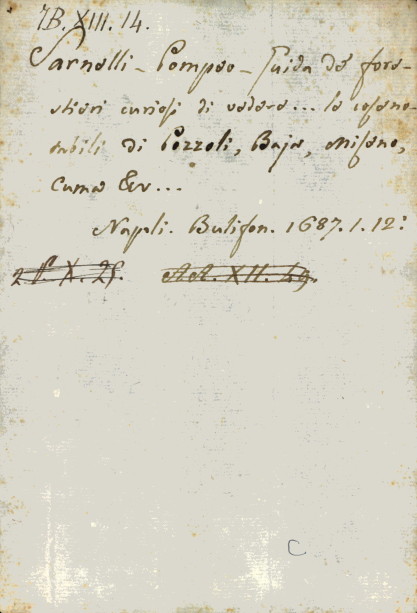 7B. XIII. 14.
Sarnelli - Pompeo - Guida de' fore-
stieri curiosi di vedere... le cose no-
tabili di Pozzoli, Baja, Miseno,
Cuma &c...
Napoli. Bulifon. 1687. 1. 12:
XII. 49.
C